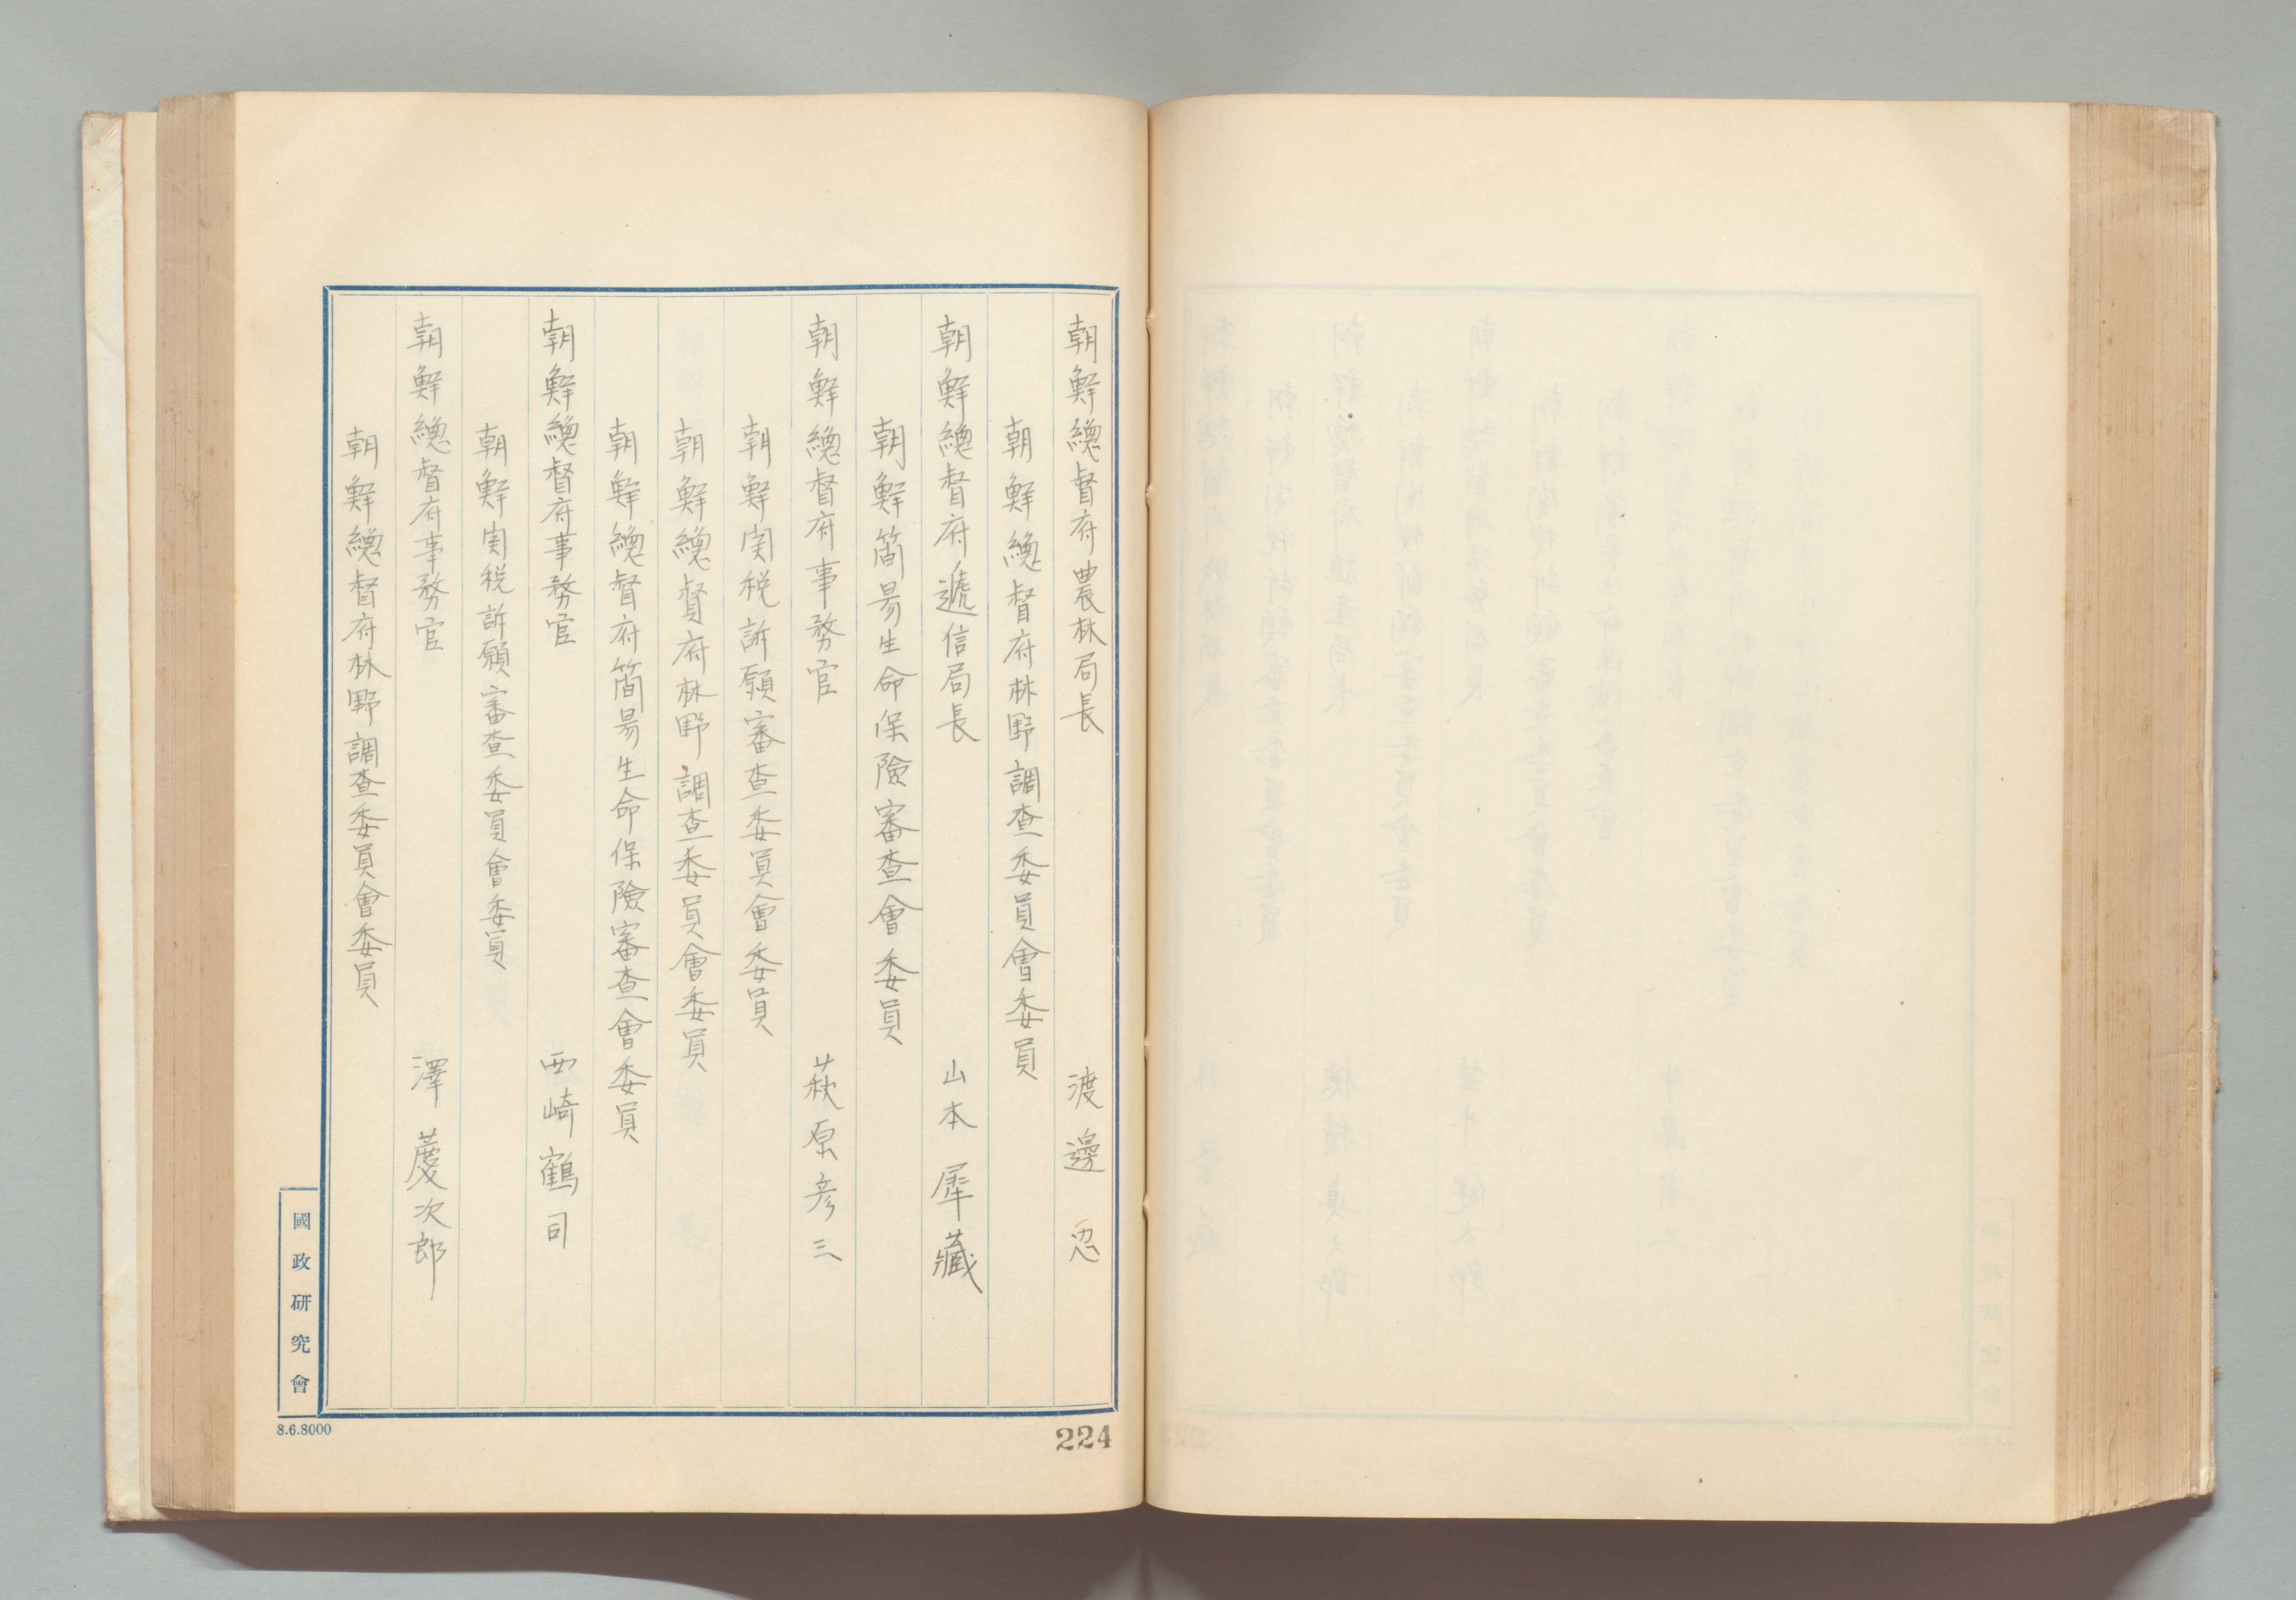 朝鮮總督府農林局長 渡邊 忍
朝鮮總督府林野調查委員會委員
朝鮮總督府遞信局長 山本犀藏
朝鮮簡易生命保險審查會委員
朝鮮總督府事務官 萩原彦三
朝鮮関税訴願審查委員會委員
朝鮮總督府林野調查委員會委員
朝鮮總督府簡易生命保險審查會委員
朝鮮總督府事務官 西崎鶴司
朝鮮関税訴願審查委員會委員
朝鮮總督府事務官 澤 慶次郎
朝鮮總督府林野調查委員會委員
國政研究會
8.6.8000
224